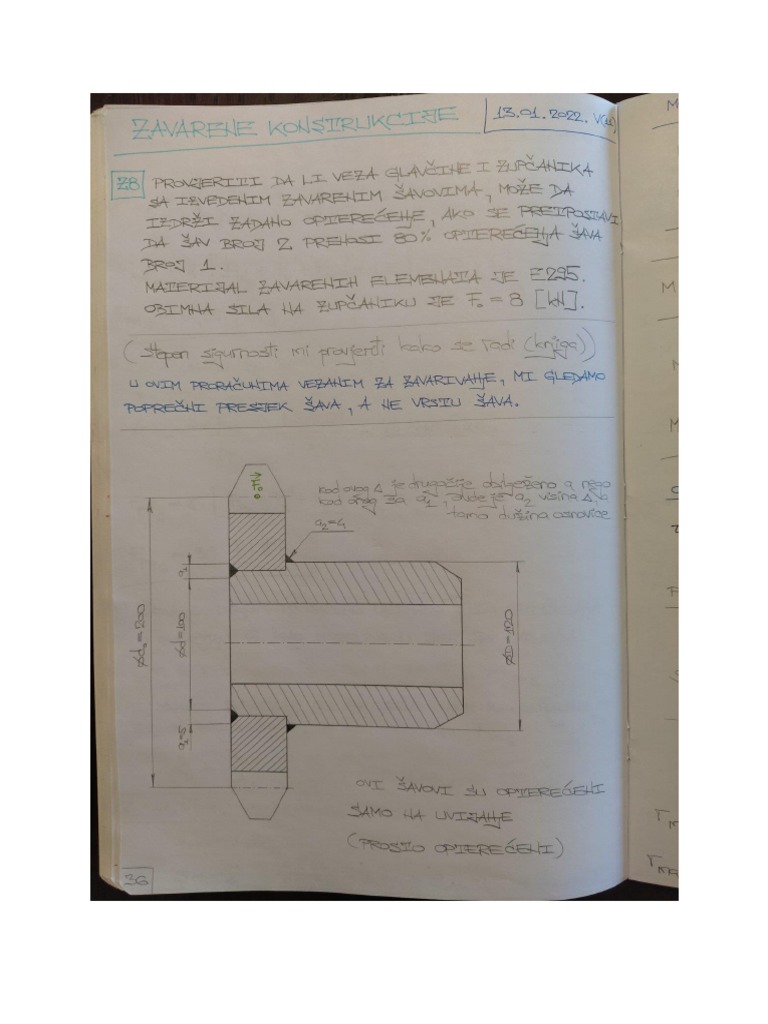 ZAVARENE KONSTRUKCIJE
13.01.2022.
Z8 PROVJERITI DA LI VEZA GLAVČINE I ZUPČANIKA
SA IZVEDENIM ZAVARENIM ŠAVOVIMA, MOŽE DA
IZDRŽI ZADANO OPTEREĆENJE, AKO SE PRETPOSTAVI
DA ŠAV BROJ 2 PRENOSI 80% OPTEREĆENJA ŠAVA
BROJ 1.
MATERIJAL ZAVARENIH ELEMENATA JE E295.
OBIMNA SILA NA ZUPČANIKU JE F₀ = 8 [kN].
(stepen sigurnosti mi provjeriti kako se radi (knjiga))
U OVIM PRORAČUNIMA VEZANIM ZA ZAVARIVANJE, MI GLEDAMO
POPREČNI PRESJEK ŠAVA, A NE VRSTU ŠAVA.
F₀
kod ovog Δ je drugačije obilježeno a nego
kod onog za a₁, ovdje je a₂ visina Δ, a
tamo dužina osnovice
a₂=4
a₁
Ød₀=200
Ød=100
ØD=120
a₁=5
OVI ŠAVOVI SU OPTEREĆENI
SAMO NA UVIJANJE
(PROSTO OPTEREĆENI)
36